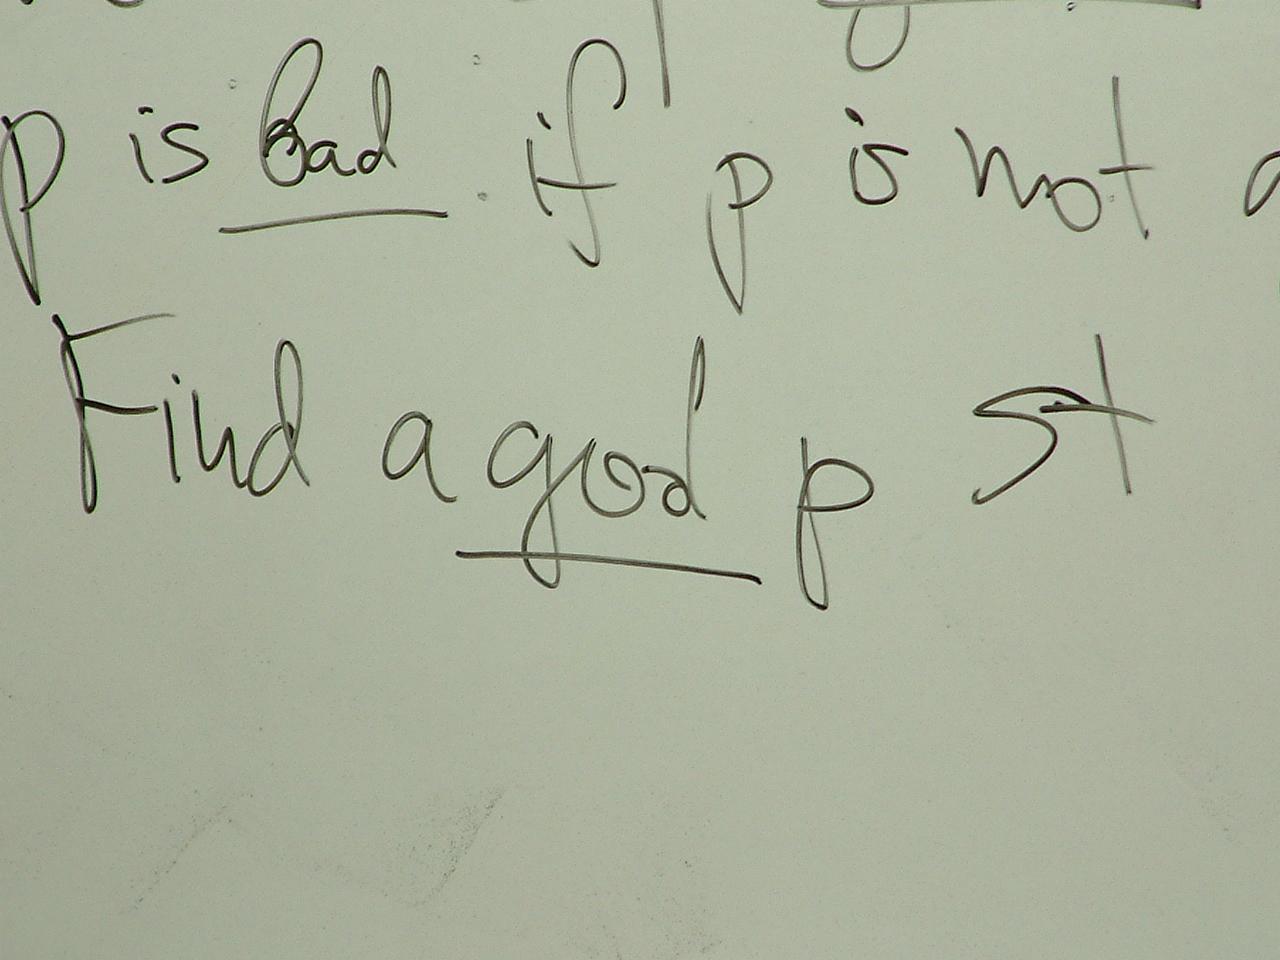 p is bad if p is not
Find a good p st